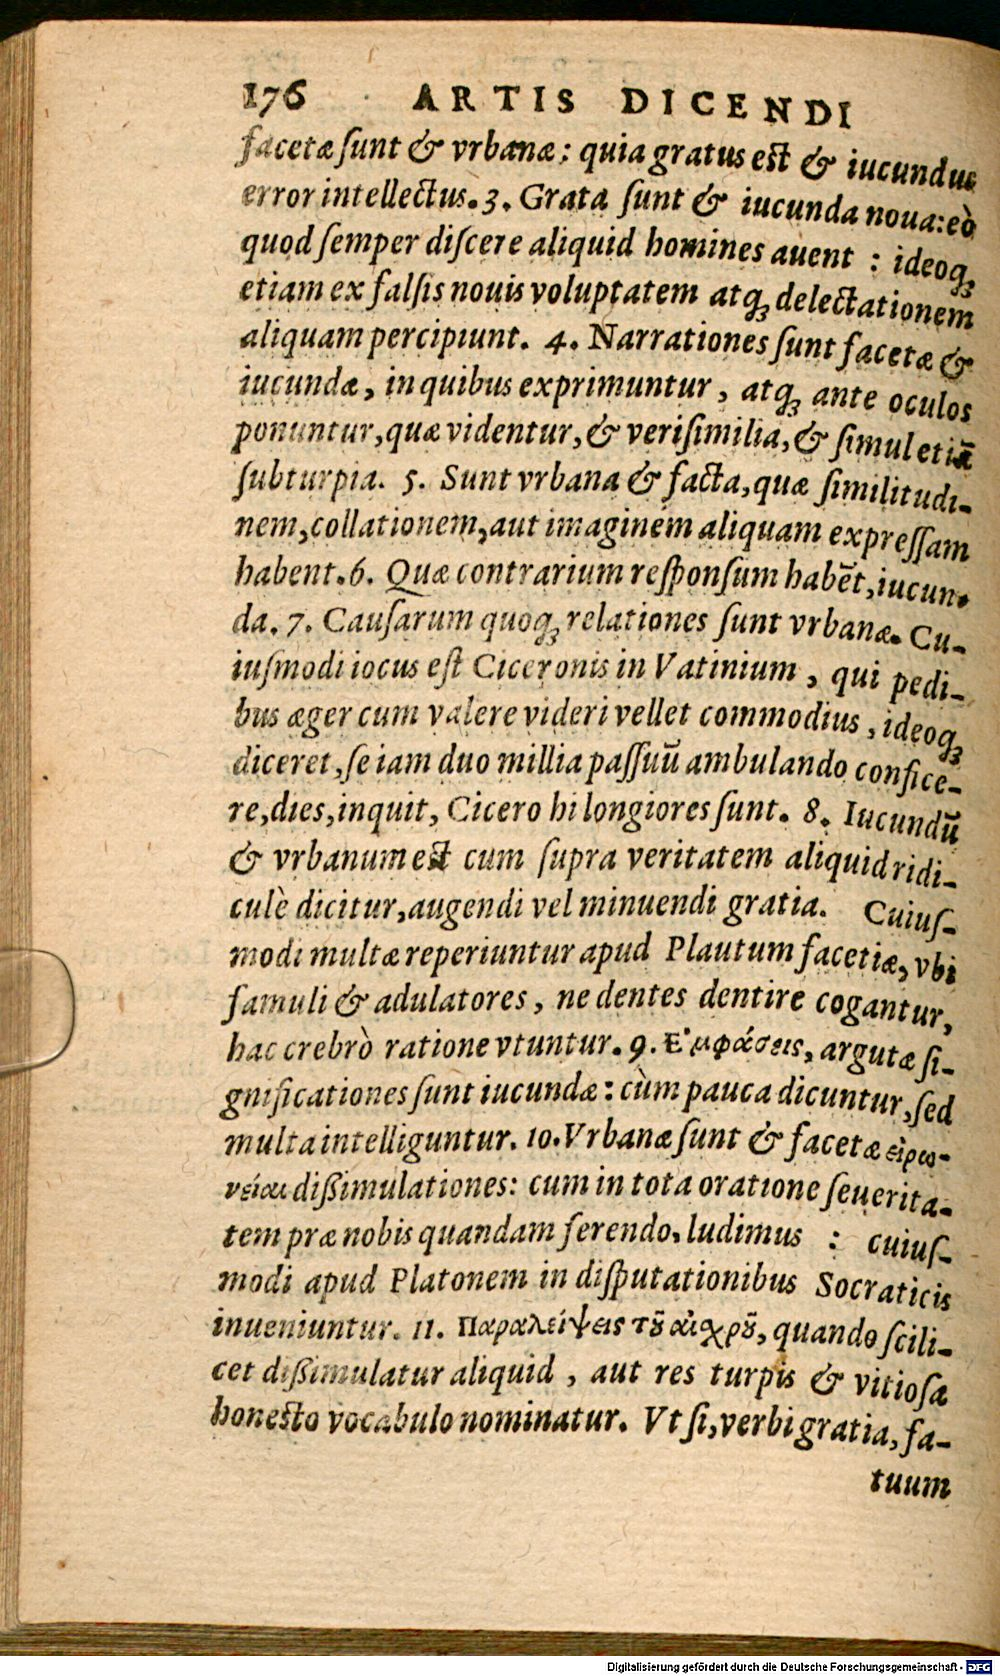 176 ARTIS DICENDI
facetæ ſunt & vrbanæ: quia gratus est & iucundus
error intellectus. 3. Grata ſunt & iucunda noua: eò
quod ſemper diſcere aliquid homines auent : ideoq́ꝫ
etiam ex falſis nouis voluptatem atq́ꝫ delectationem
aliquam percipiunt. 4. Narrationes ſunt facetæ &
iucundæ, in quibus exprimuntur, atq́ꝫ ante oculos
ponuntur, quæ videntur, & veriſimilia, & ſimul etiã
ſubturpia. 5. Sunt vrbana & facta, quæ ſimilitudi-
nem, collationem, aut imaginem aliquam expreſſam
habent. 6. Quæ contrarium reſponſum habẽt, iucun-
da. 7. Cauſarum quoq́ꝫ relationes ſunt vrbanæ. Cu-
iuſmodi iocus eſt Ciceronis in Vatinium, qui pedi-
bus æger cum valere videri vellet commodius, ideoq́ꝫ
diceret, ſe iam duo millia paſſuũ ambulando conficé-
re, dies, inquit, Cicero hi longiores ſunt. 8. Iucundũ
& vrbanum est cum ſupra veritatem aliquid ridi-
culè dicitur, augendi vel minuendi gratia. Cuiuſ-
modi multæ reperiuntur apud Plautum facetiæ, vbi
famuli & adulatores, ne dentes dentire cogantur,
hac crebrò ratione vtuntur. 9. Ε᾽μφάσεις, argutæ ſi-
gnificationes ſunt iucundæ: cùm pauca dicuntur, ſed
multa intelliguntur. 10. Vrbanæ ſunt & facetæ εἰρω-
νείαι dißimulationes: cum in tota oratione ſeuerita-
tem præ nobis quandam ferendo, ludimus : cuiuſ-
modi apud Platonem in diſputationibus Socraticis
inueniuntur. 11. Παραλείψεις τȣ͂ αἰχρȣ͂, quando ſcili-
cet dißimulatur aliquid, aut res turpis & vitioſa
honesto vocabulo nominatur. Vt ſi, verbi gratia, fa-
tuum
Digitalisierung gefördert durch die Deutsche Forschungsgemeinschaft - DFG